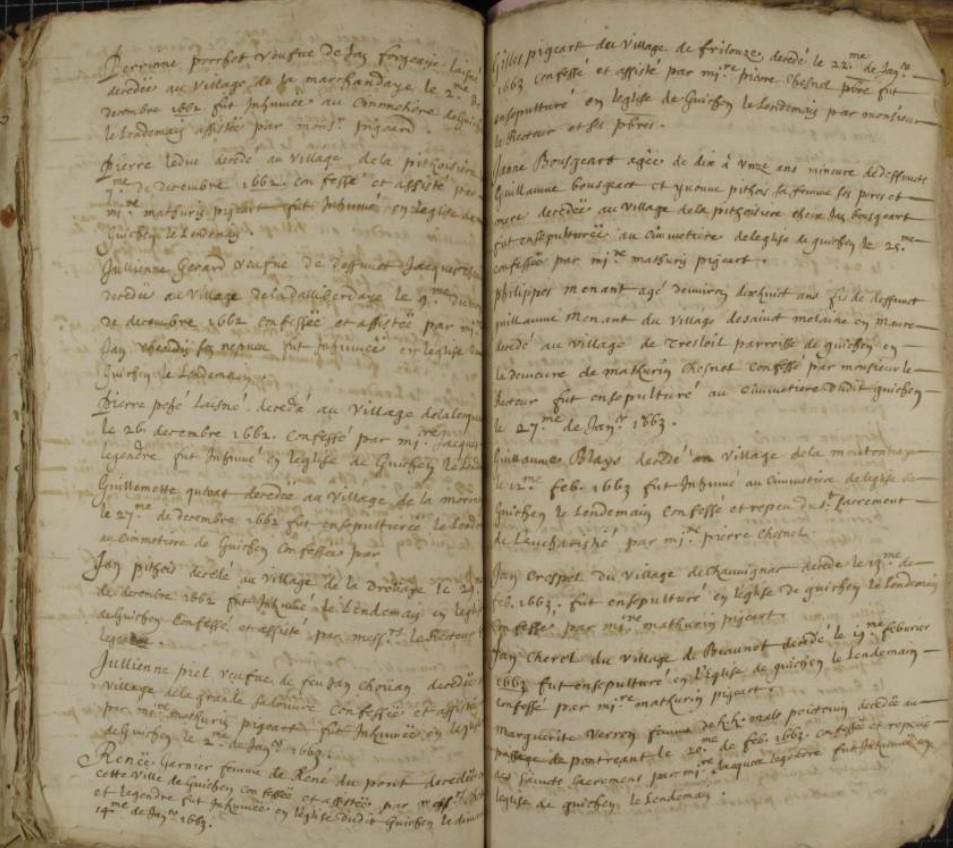 Perrinne porchet veufue de Jan
decedée au village de la marchandaye le 2.me de
decembre 1662 fut Inhumée au Cimmetiere de Guichen
le Lendemain assistée par mons.r pigeard.
Pierre Leduc decedé au village dela pithoisiere
me de decembre 1662. confessé et assisté par
mi.re mathurin pigeart fut Inhumé en leglise de
Guichen le Lendemain
Jullienne Gerard veufue de deffunct Jacques
decedée au village dela Dalliberdaye le 9.me du
de decembre 1662 confessée et assistée par mi.re
Jan fut Inhumée en leglise de
Guichen le Lendemain.
Pierre Laisné decedé au village
le 26. decembre 1662. confessé par mi.re Jacques
legendre fut Inhumé en leglise de Guichen le
Guillemette decedée au village de la
le 27.me de decembre 1662 fut ensepulturée le
au Cimmetiere de Guichen confessée par
Jan pithois decedé au village de la le 29.
de decembre 1662 fut Inhumé le Lendemain en leglise
de Guichen confessé et assisté par mess.rs le Recteur
legendre.
Jullienne piel veufue de feu Jan Choüan decedée
village dela grande confessée et assistée
par mi.re mathurin pigeart fut Inhumée en leglise
de Guichen le 2.me de Jan.er 1663.
Renée Garnier femme de René du poret decedée
cette ville de Guichen confessée et assistée par mess.rs
et legendre fut Inhumée en leglise dudit Guichen le
14.me de Jan.er 1663.
Gilles pigeart du village de frilouze decedé le 22.me de Jan.er
1663 confessé et assisté par mi.re pierre Chesnel pbre fut
ensepulturé en leglise de Guichen le Lendemain par monsieur
le Recteur et ses pbres.
Janne Bousgeart agée de dix à unze ans mineure de deffuncts
Guillaume bousgeart et yvonne pithois sa femme ses pere et
mere decedée au village dela pithoisiere chez Jan bousgeart
fut ensepulturée au Cimmetiere deleglise de guichen le 25.me
confessée par mi.re mathurin pigeart.
philippes menant agé denuiron dixhuict ans fis de deffunct
guillaume Menant du village de saint melaine en Maure
decedé au village de Tresloil parroisse de guichen en
la demeure de mathurin Chesnel confessé par monsieur le
Recteur fut ensepulturé au Cimmetiere dudit guichen
le 27.me de Jan.er 1663.
Guillaume Blays decedé au village dela
le 12.me feb. 1663 fut Inhumé au Cimmetiere deleglise de
Guichen le Lendemain confessé et repeu du s.t Sacrement
de Leucharistie par mi.re pierre Chesnel.
Jan Crespel du village de Chauuignac decedé le 13.me de
feb. 1663. fut ensepulturé en leglise de guichen le Lendemain
confessé par mi.re mathurin pigeart
Jan Cherel du village de Beaunot decedé le feburier
1663 fut ensepulturé en l'eglise de guichen le Lendemain
confessé par mi.re mathurin pigeart.
Marguerite Verron femme de poiteuin decedée au
passage de pontreant le 20.me de feb. 1663 confessée et repeue
du sainct Sacrement par mi.re Jacques legendre fut Inhumée en
leglise de guichen le Lendemain.